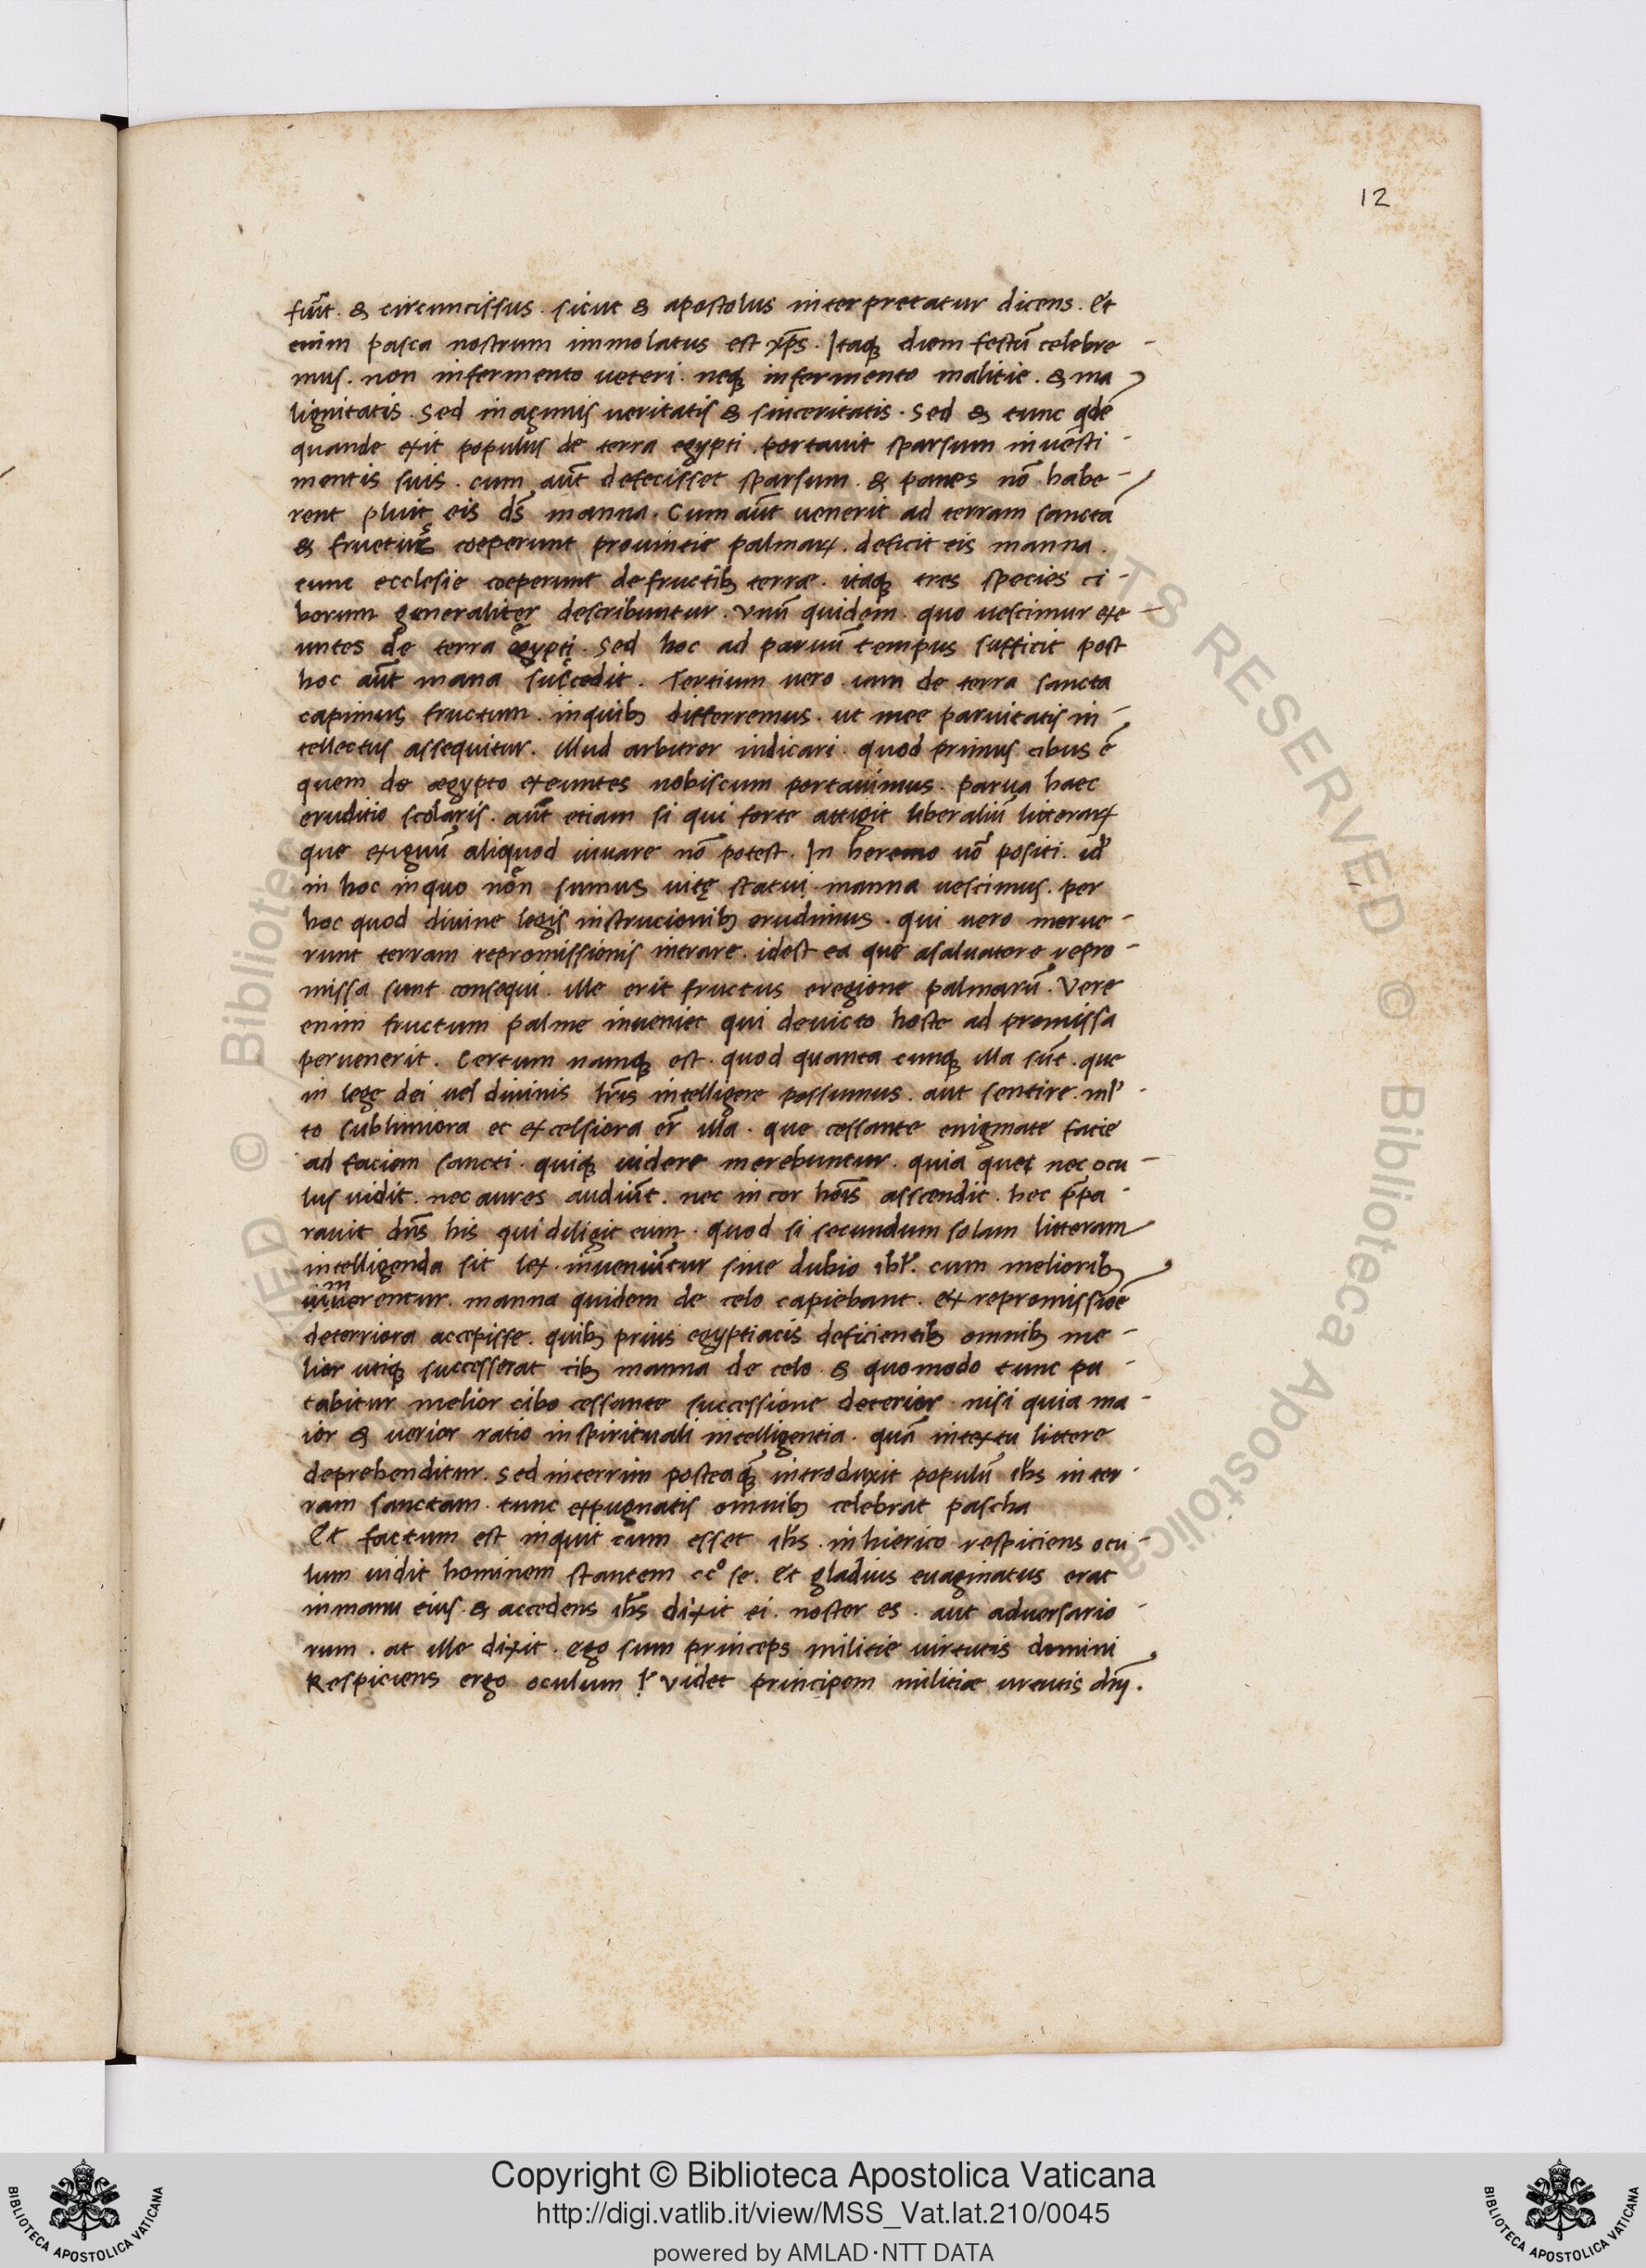 12
fuit̄. & circuncissus. sicut & apostolus interpretatur dicens. Et
enim pasca nostrum immolatus est xp̄s. Itaq; diem festū celebre -
mus. non infermento ueteri. neq; infermento malitie. & ma
lignitatis. sed in açimis ueritatis & sinceritatis. sed & tunc qdē
quando exit populus de terra egypti. portauit sparsum in uesti -
mentis suis. cum aūt defecisset sparsum. & panes nō habe -
rent pluit eis ds̄ manna. Cum aūt uenerit ad terram sanctā
& fructus coeperunt prouintie palmaꝝ. deficit eis manna.
tunc ecclesie coeperunt de fructib; terræ. itaq; tres species ci -
borum generaliter describuntur. Vnū quidem. quo uescimur exe -
untes de terra egypti. sed hoc ad paruū tempus sufficit post
hoc aūt mana suscedit. Tertium uero. iam de terra sancta
capimus fructum. inquib; differremus. ut mee paruitatis in -
tellectus assequitur. Illud arbitror indicari. quod primus cibus ē
quem de ægypto exeuntes nobiscum portauimus. parua haec
eruditio scolaris. aūt etiam si qui forte attigit liberaliū litteraꝝ
que exiguū aliquod iuuare nō potest. In heremo uō positi. id'
in hoc inquo non sumus uitę statui. manna uescimus. per
hoc quod diuine legis instrucionib; erudimus. qui uero merue -
runt terram repromissionis intrare. idest ea que asaluatore repro -
missa sunt consequi. ille erit fructus eregione palmarū. Vere
enim fructum palme inueniet qui deuicto hoste ad promissa
peruenerit. Certum namq; est. quod quanta cunq; illa sūt. que
in lege dei uel diuinis lr̄is intelligere possumus. aut sentire. ml'
to sublimiora et excelsiora er̄ illa. que cessante enigmate facie
ad faciem sancti. quiq; uidere merebuntur. quia quet nec ocu -
lus uidit. nec aures audiūt. nec in cor hoīs assendit. hec p̄pa -
rauit dn̄s his qui diligit eum. quod si secundum solam litteram
intelligenda sit lex. inueniūtur sine dubio ibr̄l. cum meliorib;
uiuerentur. manna quidem de celo capiebant. ex repromissioē
deterriora accepisse. quib; prius egyptiacis deficientib; omnib; me -
lior utiq; successerat cib; manna de celo. & quomodo tunc pu -
tabitur melior cibo cessante successione deterior. nisi quia ma -
ior & uerior ratio inspirituali intelligentia. quā intextu littere
deprehenditur. sed interrim posteaq̄ introduxit populū ihs̄ in ter -
ram sanctam. tunc expugnatis omnib; celebrat pascha
Et factum est inquit cum esset ihs̄. in hierico respiciens ocu -
lum uidit hominem stantem cc° se. Et gladius euaginatus erat
inmanu eius. & accedens ihs̄ dixit ei. noster es. aut aduersario -
rum. at ille dixit. ego sum princeps militie uirtutis domini
Respiciens ergo oculum videt principem militiæ uirtutis dn̄j.
Copyright © Biblioteca Apostolica Vaticana
http://digi.vatlib.it/view/MSS_Vat.lat.210/0045
powered by AMLAD·NTT DATA
BIBLIOTECA APOSTOLICA VATICANA
BIBLIOTECA APOSTOLICA VATICANA